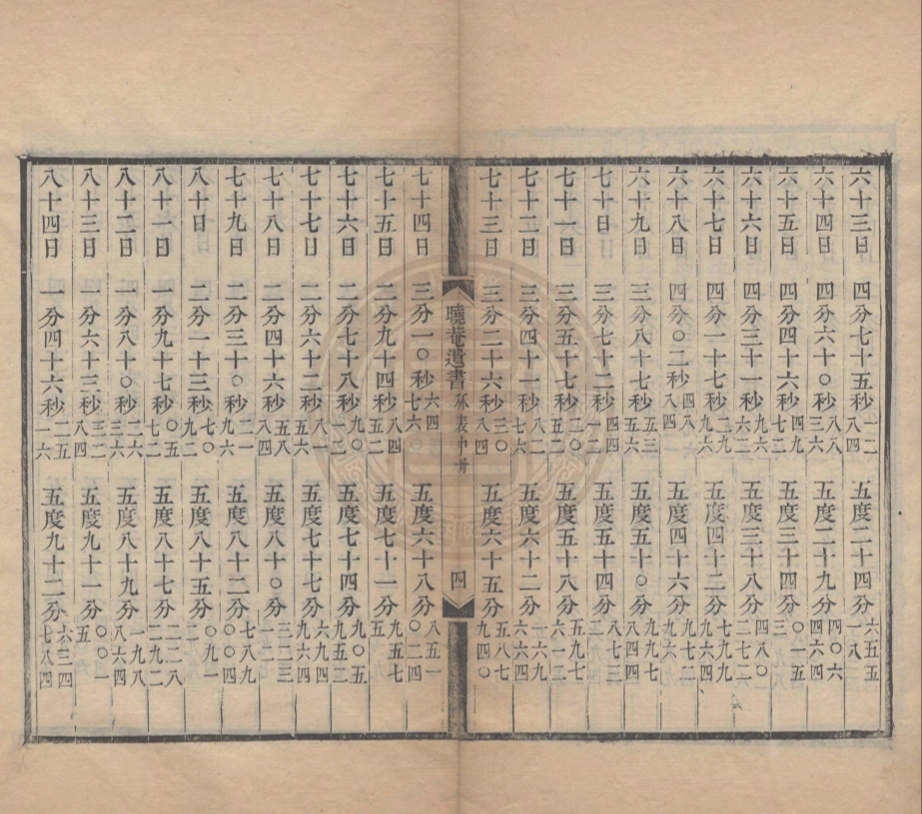 六十三日 四分七十五秒一二八四 五度二十四分六五五一八
六十四日 四分六十〇秒八八三六 五度二十九分四〇六四六四
六十五日 四分四十六秒四九七二 五度三十四分〇一五三
六十六日 四分三十一秒九六九二 五度三十八分四八〇二七二
六十七日 四分一十七秒二九九六 五度四十二分七九九九六四
六十八日 四分〇二秒四八八四 五度四十六分九七二九六
六十九日 三分八十七秒五三五六 五度五十〇分九九七八四四
七十日 三分七十二秒四四一二 五度五十四分八七三二
七十一日 三分五十七秒二〇五二 五度五十八分五九七六一二
七十二日 三分四十一秒八二七六 五度六十二分一六九六六四
七十三日 三分二十六秒三〇八四 五度六十五分五八七九四〇
曉菴遺書 厤表中冊 四
七十四日 三分一〇秒六四七六 五度六十八分八五一〇二四
七十五日 二分九十四秒八四五二 五度七十一分九五七五
七十六日 二分七十八秒九〇一二 五度七十四分九〇五九五二
七十七日 二分六十二秒八一五六 五度七十七分六九四九六四
七十八日 二分四十六秒五八八四 五度八十〇分三二三一二
七十九日 二分三十〇秒二一九六 五度八十二分七八九〇〇四
八十日 二分一十三秒七〇九二 五度八十五分〇九一二
八十一日 一分九十七秒〇五七二 五度八十七分二二八二九二
八十二日 一分八十〇秒二六三六 五度八十九分一九八八六四
八十三日 一分六十三秒三二八四 五度九十一分〇〇一五
八十四日 一分四十六秒二五一六 五度九十二分六三四七八四